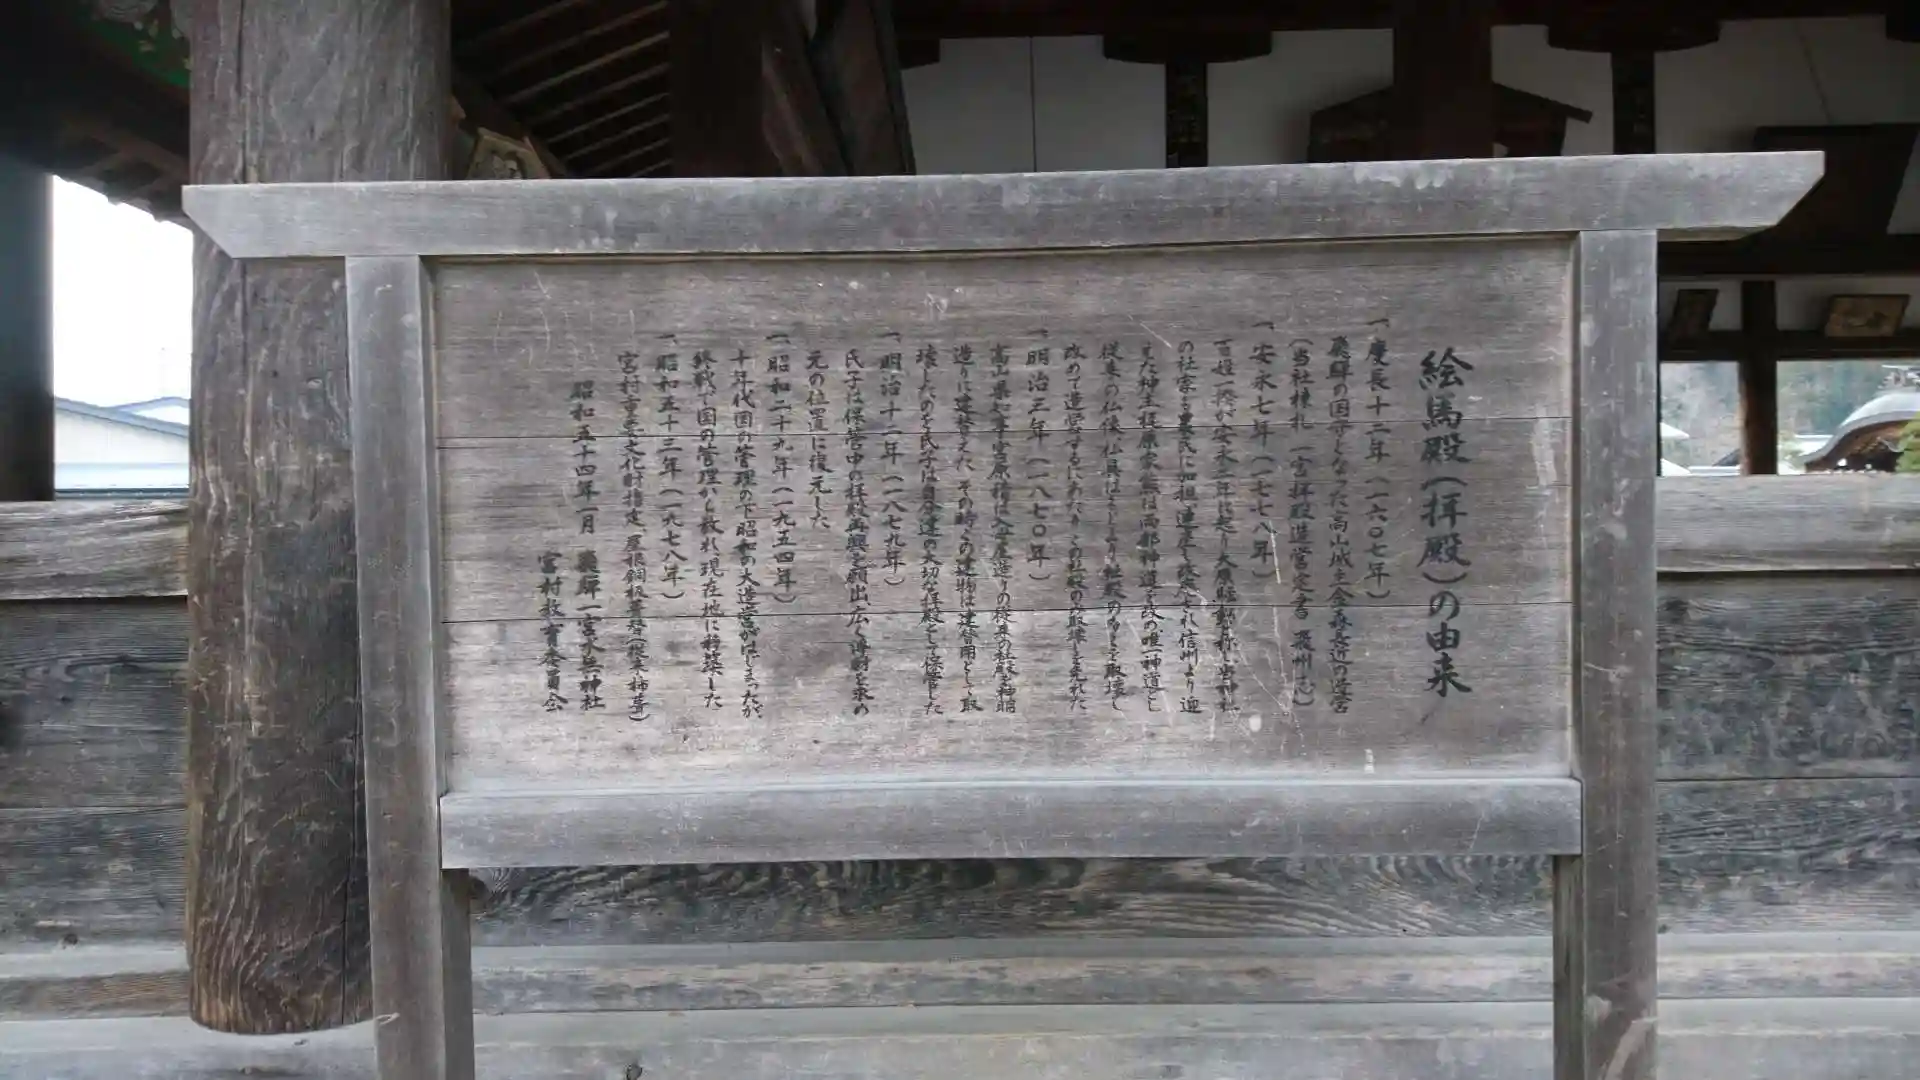 絵馬殿(拝殿)の由来
一、慶長十二年(一六〇七年)
飛騨の国守となった高山城主金森長近の造営
(当社棟札 一宮拝殿造営定書 飛州志)
一、安永七年(一七七八年)
百姓一揆が安永二年に起り大原騒動と称し当神社
の社家も農民に加担連座し改廃され信州より迎
えた神主梶原家熊は両部神道を改め唯一神道とし
従来の仏像、仏具はもとより社殿のみを取壊し
改めて造営するにあたりこの社殿のみ取壊しを免れた
一、明治三年(一八七〇年)
高山県知事宮原積は入母屋造りの従来の社殿を神明
造りに建替えた、その時この建物は建替用として取
壊したのを氏子は自分達の大切な拝殿として保管した
一、明治十二年(一八七九年)
氏子は保管中の拝殿再興を願出、広く浄財を求め
元の位置に復元した
一、昭和二十九年(一九五四年)
十年代国の管理の下昭和の大造営がはじまったが、
終戦で国の管理から放れ現在地に移築した
一、昭和五十三年(一九七八年)
宮村重要文化財指定、屋根銅板葺替(従来柿葺)
昭和五十四年一月 飛騨一宮水無神社
宮村教育委員会